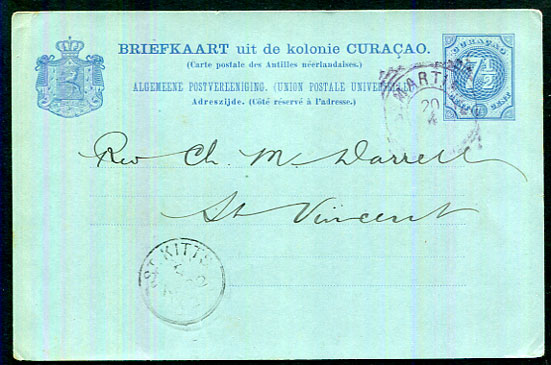 BRIEFKAART uit de kolonie CURAÇAO.
(Carte postale des Antilles néerlandaises.)
ALGEMEENE POSTVEREENIGING. (UNION POSTALE UNIVERSELLE)
Adreszijde. (Côté réservé à l'adresse.)
CURAÇAO
7 1/2
MARTIN
20
4
Rev Ch. M. Darrell
St Vincent
ST. KITTS